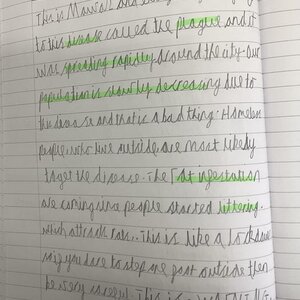 This is Maria
to this disease called the plague and it
was spreading rapidly around the city. Our
population is slowly decreasing due to
this disease and that is a bad thing. Homeless
people who live outside are most likely
to get the disease. The rat infestation
are coming since people started littering.
which attracts rats. This is like a lockdown
so if you dare to step one foot outside then
be very careful. This is